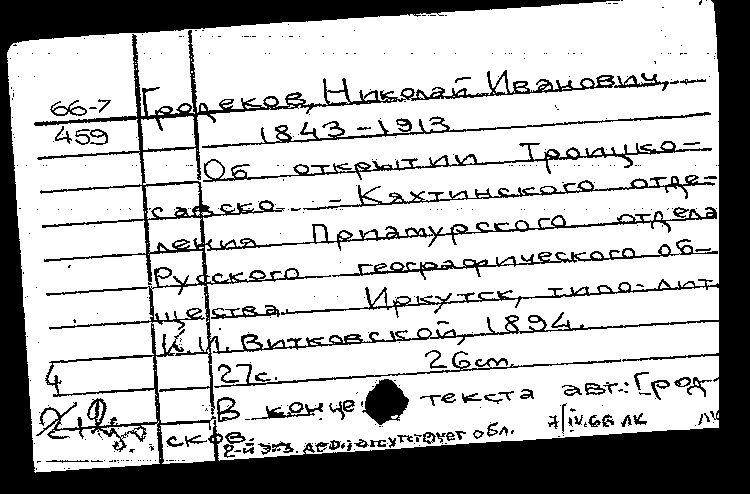 66-7 Гродеков, Николай Иванович,
459 1843-1913
Об открытии Троицко-
савско - Кяхтинского отде-
ления Приамурского отдела
Русского географического об-
щества. Иркутск, типо-лит.
К.И. Витковской, 1894.
4 27с. 26cm.
В конце текста авт.: Грод-
еков.
2-й экз. деф.: отсутствует обл. 7/IV.66 ЛК